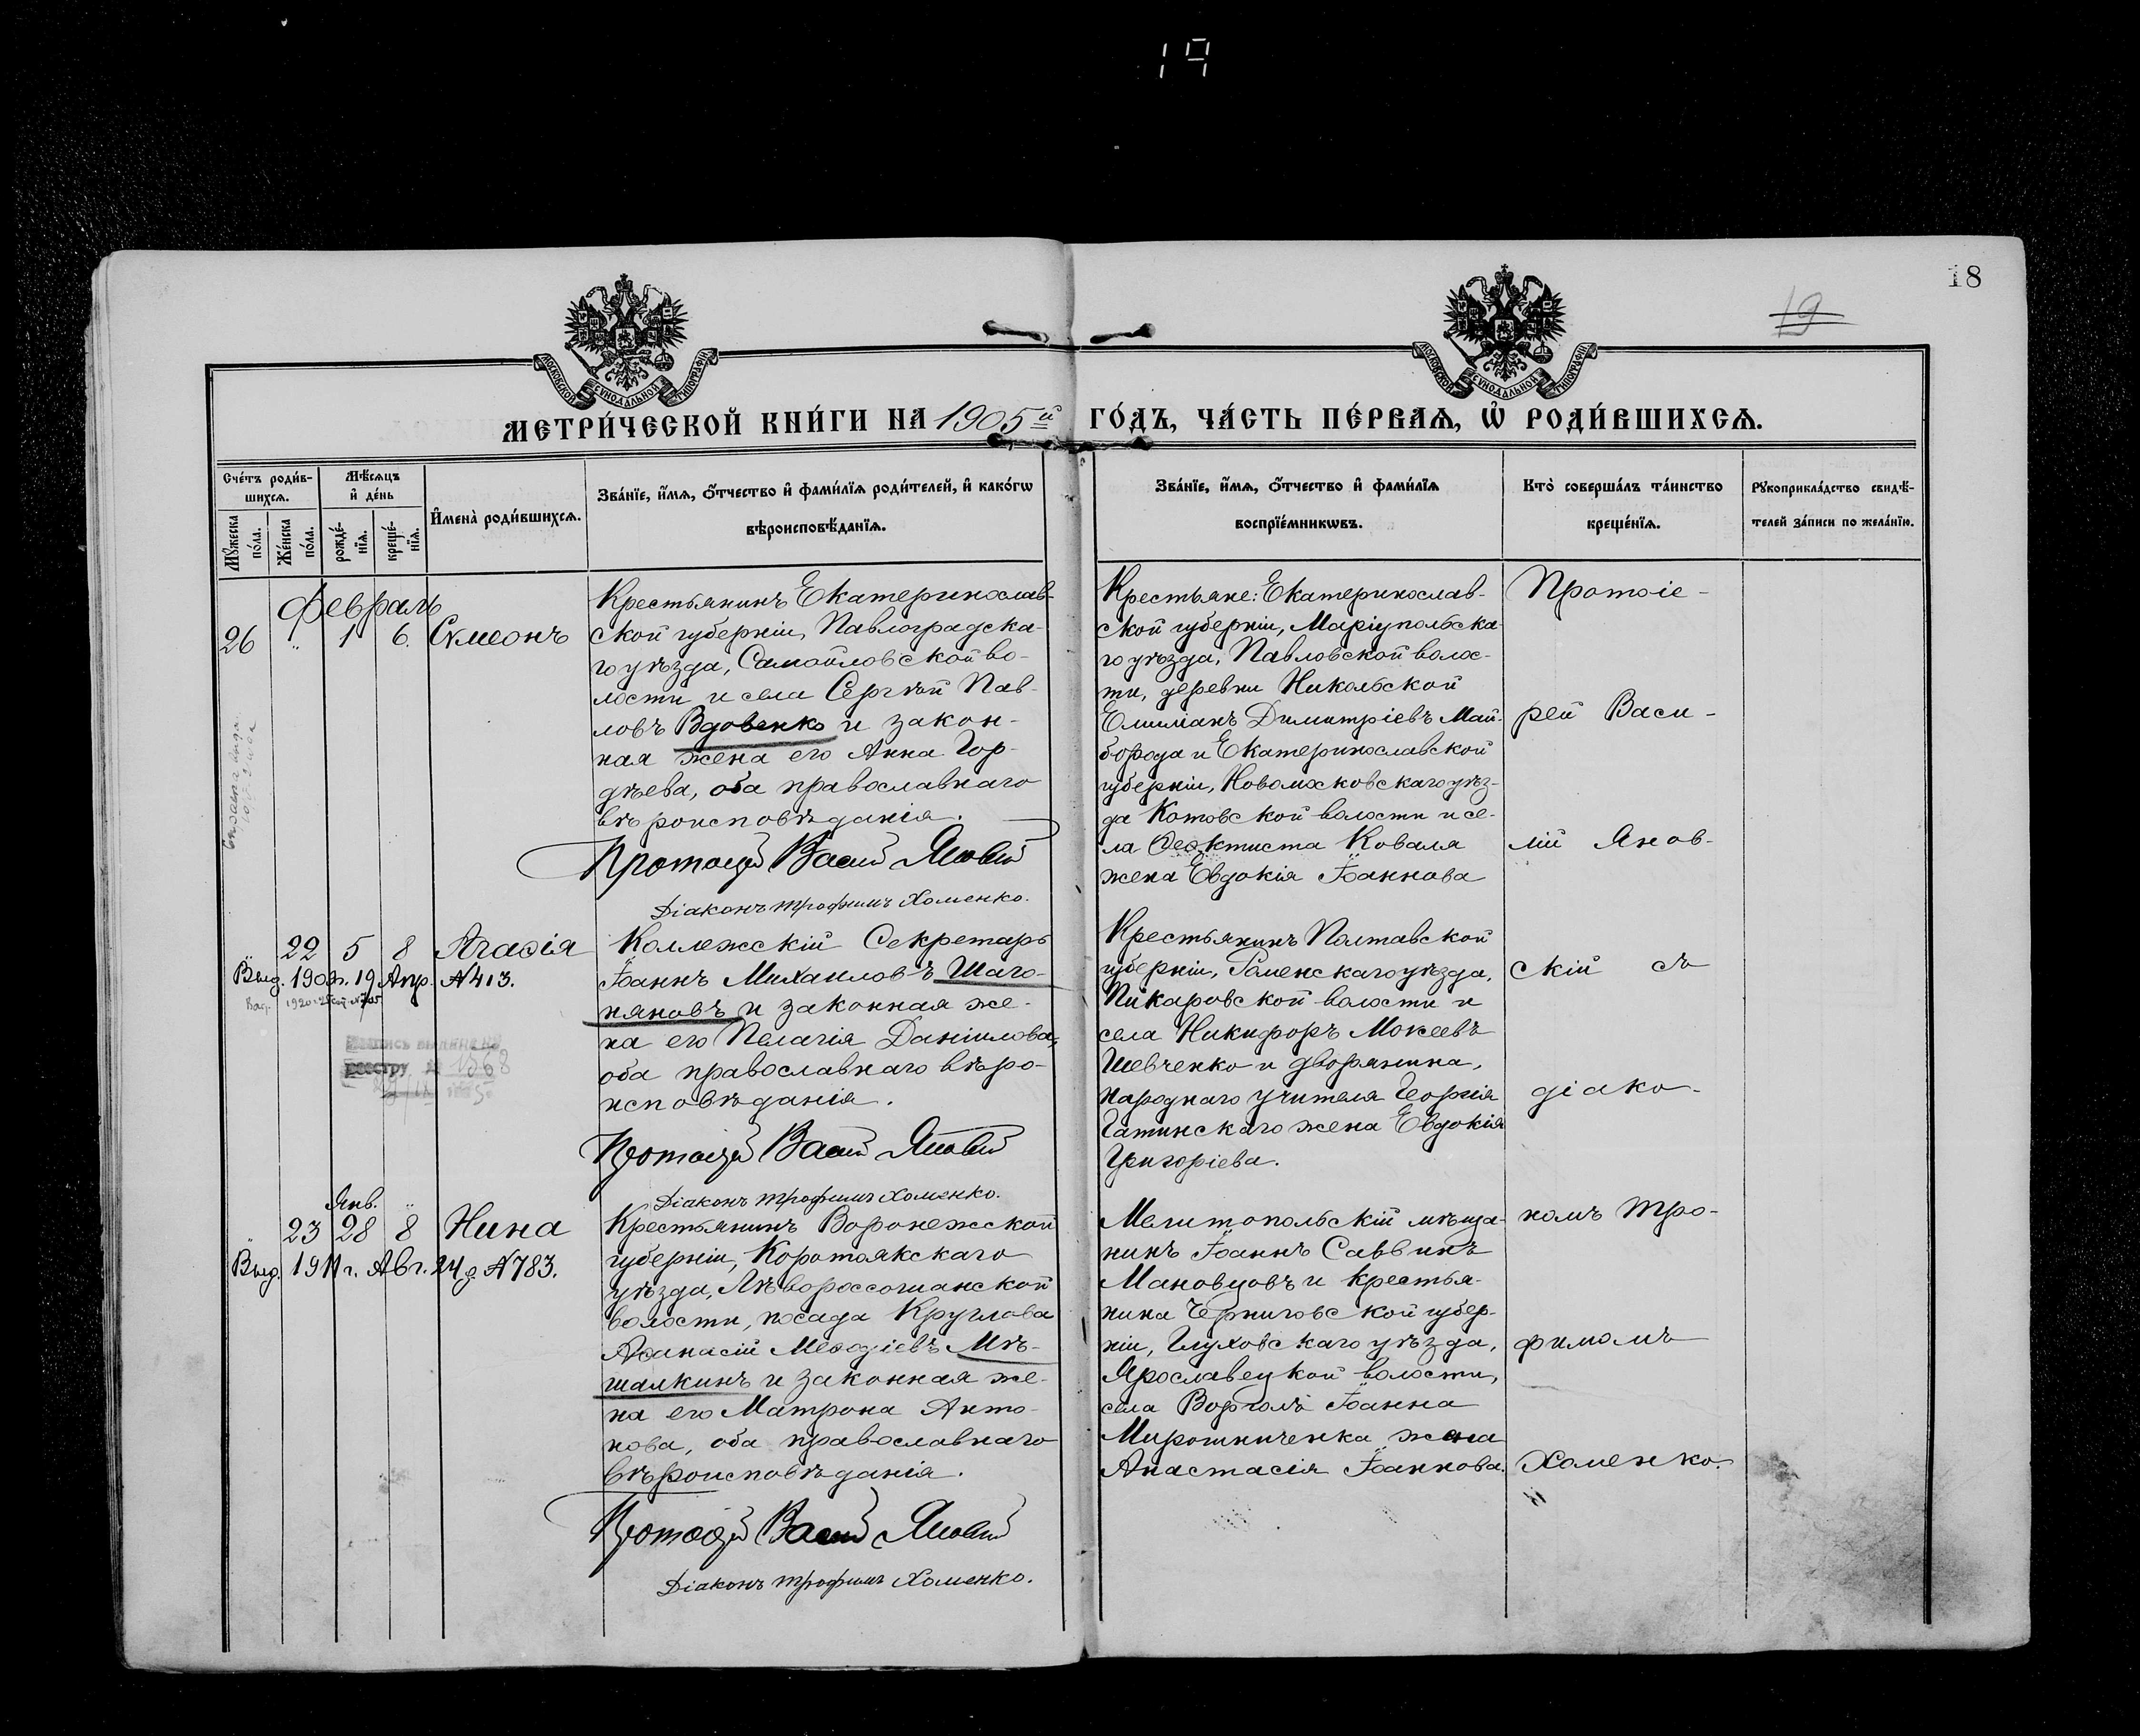 19
18
19
МОСКОВСКОЙ СѴНОДАЛЬНОЙ ТИПОГРАФІИ
МОСКОВСКОЙ СѴНОДАЛЬНОЙ ТИПОГРАФІИ
МЕТРИ́ЧЕСКОЙ КНИ́ГИ НА 1905й ГО́ДЪ, ЧА́СТЬ ПЕ́РВАѦ, Ѡ҆ РОДИ́ВШИХСѦ.
Сче́тъ роди́в-
шихсѧ.
Мꙋ́жеска по́ла.
Же́нска по́ла.
Мѣ́сѧцъ
и҆ де́нь
рожде́-
нїѧ.
креще́-
нїѧ.
И҆мена̀ роди́вшихсѧ.
Зва́нїе, и҆́мѧ, ѻ҆́тчество и҆ фами́лїѧ роди́телей, и҆ како́гѡ
вѣроисповѣ́данїѧ.
Зва́нїе, и҆́мѧ, ѻ҆́тчество и҆ фами́лїѧ
воспрїе́мникѡвъ.
Кто̀ соверша́лъ та́инство
креще́нїѧ.
Рꙋкоприкла́дство свидѣ́-
телей за́писи по жела́нїю.
Февраль
26 " 1 6. Сѵмеонъ
Крестьянинъ Екатеринослав-
ской губерніи, Павлоградска-
го уѣзда, Самойловской во-
лости и села Сергѣй Пав-
ловъ Вдовенко и закон-
ная жена его Анна Гор-
дѣева, оба православнаго
вѣроисповѣданія.
Діаконъ Трофимъ Хоменко.
Крестьяне: Екатеринослав-
ской губерніи, Маріупольска-
го уѣзда, Павловской волос-
ти, деревни Никольской
Емиліанъ Димитріевъ Май-
борода и Екатеринославской
губерніи, Новомосковскаго уѣз-
да Котовской волости и се-
ла Ѳеоктиста Коваля
жена Евдокія Іоаннова
Протоіе-
рей Васи-
лій Янов-
скій съ
діако-
номъ Тро-
фимомъ
Хоменко.
" 22 5 8 Агаѳія
Выд. 1909г. 19 Апр. №413.
Коллежскій Секретарь
Іоаннъ Михаиловъ Шаго-
няновъ и законная же-
на его Пелагія Даніилова,
оба православнаго вѣро-
исповѣданія.
Діаконъ Трофимъ Хоменко.
Крестьянинъ Полтавской
губерніи, Роменскаго уѣзда,
Пикаровской волости и
села Никифоръ Мокеевъ
Шевченко и дворянина,
народнаго учителя Георгія
Гатинскаго жена Евдокія
Григоріева.
Янв. "
" 23 28 8 Нина
Выд. 1911 г. Авг. 24 д. №783.
Крестьянинъ Воронежской
губерніи, Коротоякскаго
уѣзда, Лѣвороссошанской
волости, посада Круглова
Аѳанасій Меѳодіевъ Мѣ-
шалкинъ и законная же-
на его Матрона Анто-
нова, оба православнаго
вѣроисповѣданія.
Діаконъ Трофимъ Хоменко.
Мелитопольскій мѣща-
нинъ Іоаннъ Саввинъ
Мановцовъ и крестья-
нина Черниговской губер-
ніи, Глуховскаго уѣзда,
Ярославецкой волости,
села Воргомъ Іоанна
Мирошниченка жена
Анастасія Іоаннова.